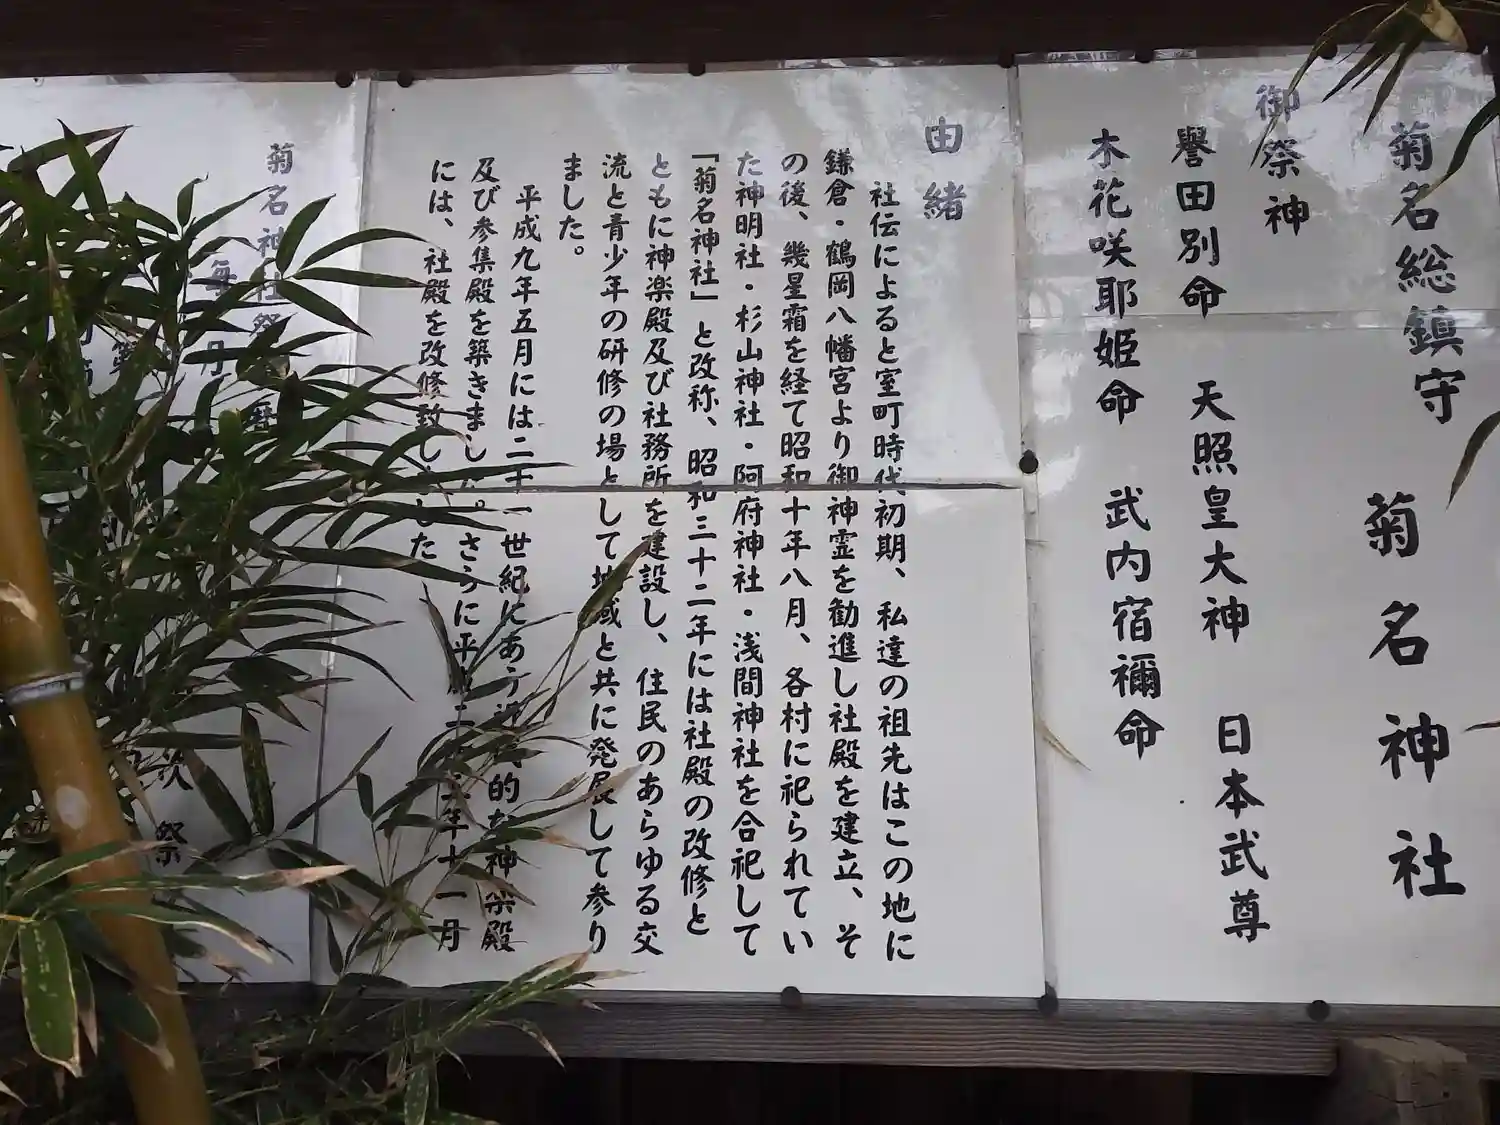 菊名総鎮守
菊名神社
御祭神
譽田別命 天照皇大神 日本武尊
木花咲耶姫命 武内宿禰命
由緒
社伝によると室町時代初期、私達の祖先はこの地に
鎌倉・鶴岡八幡宮より御神霊を勧進し社殿を建立、そ
の後、幾星霜を経て昭和十年八月、各村に祀られてい
た神明社・杉山神社・阿府神社・浅間神社を合祀して
「菊名神社」と改称、昭和三十二年には社殿の改修と
ともに神楽殿及び社務所を建設し、住民のあらゆる交
流と青少年の研修の場として地域と共に発展して参り
ました。
平成九年五月には二十一世紀にあう近 的な神楽殿
及び参集殿を築きました。さらに平 二 年十一月
には、社殿を改修致しました
菊名神社祭 暦
毎月
次 祭